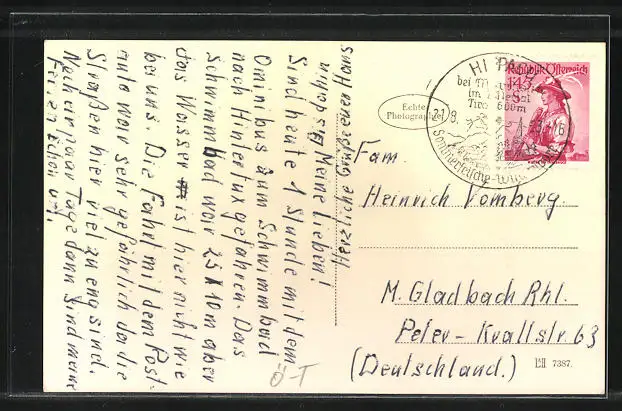 Meine Lieben!
Sind heute 1 Stunde mit dem
Omnibus zum Schwimmbad
nach Hintertux gefahren. Das
Schwimmbad war 25 X 10 m aber
das Wasser ist hier nicht wie
bei uns. Die Fahrt mit dem Post-
auto war sehr gefährlich da die
Straßen hier viel zu eng sind.
Noch ein paar Tage dann sind meine
Ferien schon um.
Herzliche Grüße euer Hans
Echte
Photographie
HIPPACH
bei Mayrhofen
im Zillertal
Tirol 600m
21.8.
Sommerfrische
Republik Österreich
1.45
S
Fam.
Heinrich Vomberg.
M. Gladbach Rhl.
Peter-Krallstr 63
(Deutschland.)
Ö-T
7387.